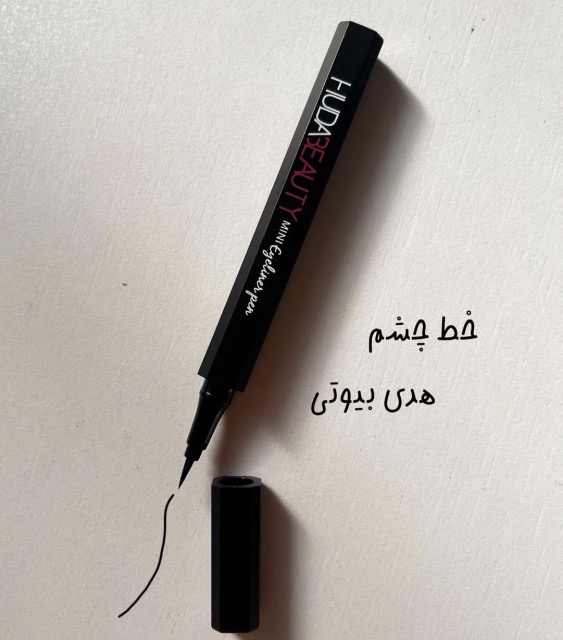 HUDABEAUTY MINI Eyeliner pen
خط چشم
هدی بیوتی